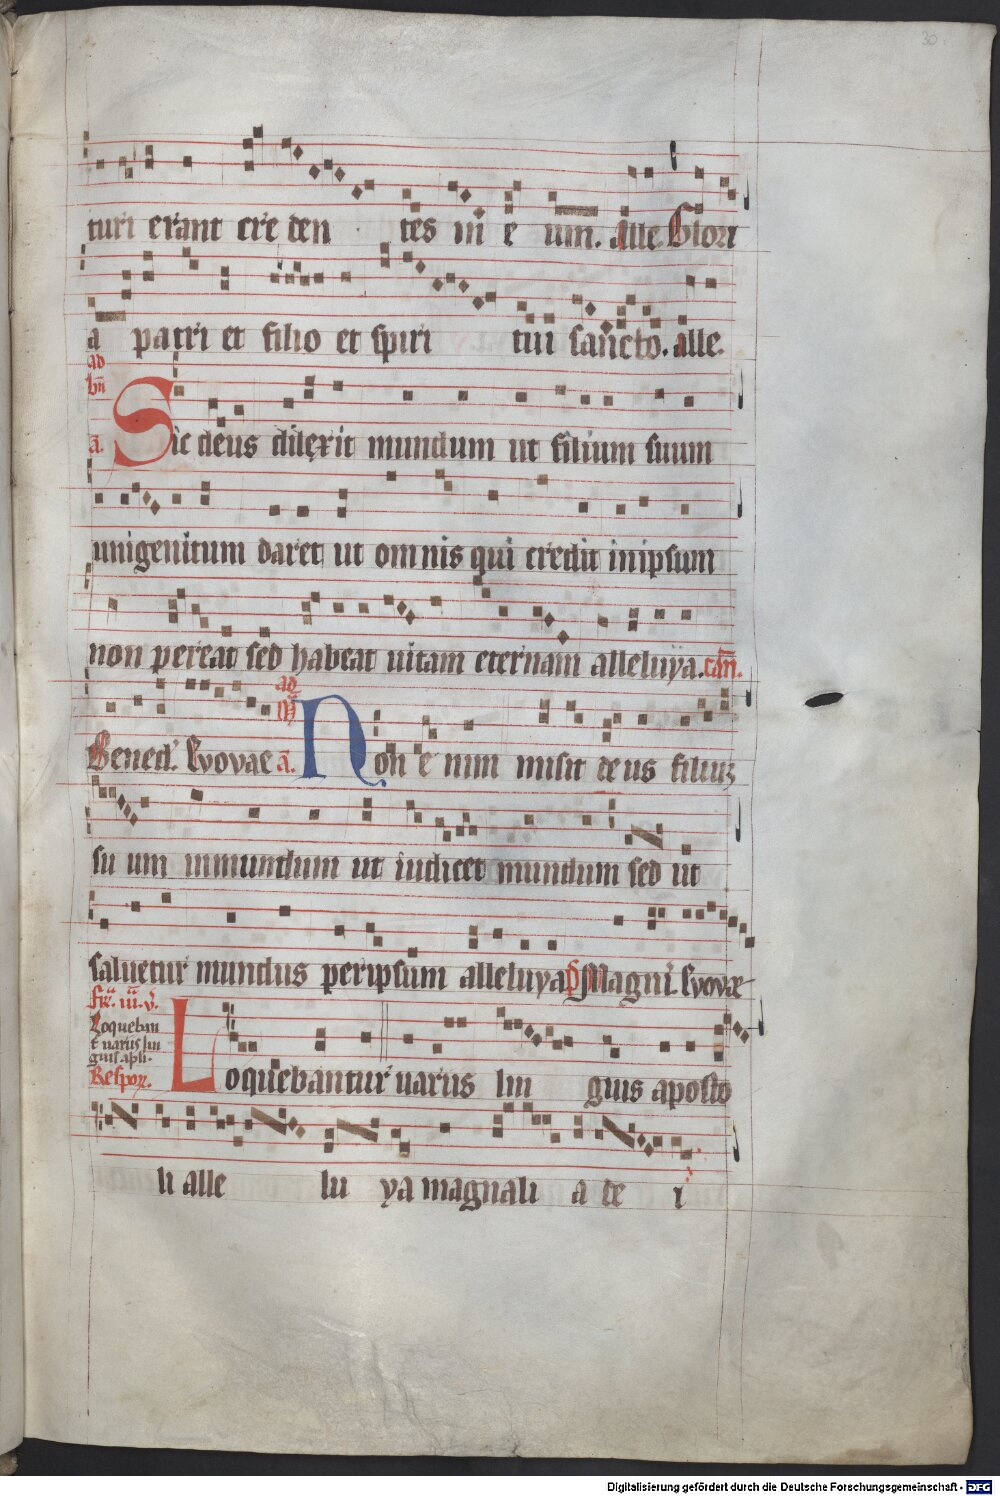 30
turi erant cre den tes in e um. alle. Glori
a patri et filio et spiri tui sancto. alle.
ad
bn̄
a̅. Sic deus dilexit mundum ut filium suum
unigenitum daret ut omnis qui credit in ipsum
non pereat sed habeat uitam eternam alleluya. can̄.
ad
Bened'. Evovae a̅. Non e nim misit de us filiuʒ
su um in mundum ut iudicet mundum sed ut
saluetur mundus per ipsum alleluya Magni. Evovae
Loqueban
t uariis lin
guis apli.
Respon. Loquebantur uariis lin guis aposto
li alle lu ya magnali a de i
Digitalisierung gefördert durch die Deutsche Forschungsgemeinschaft - DFG